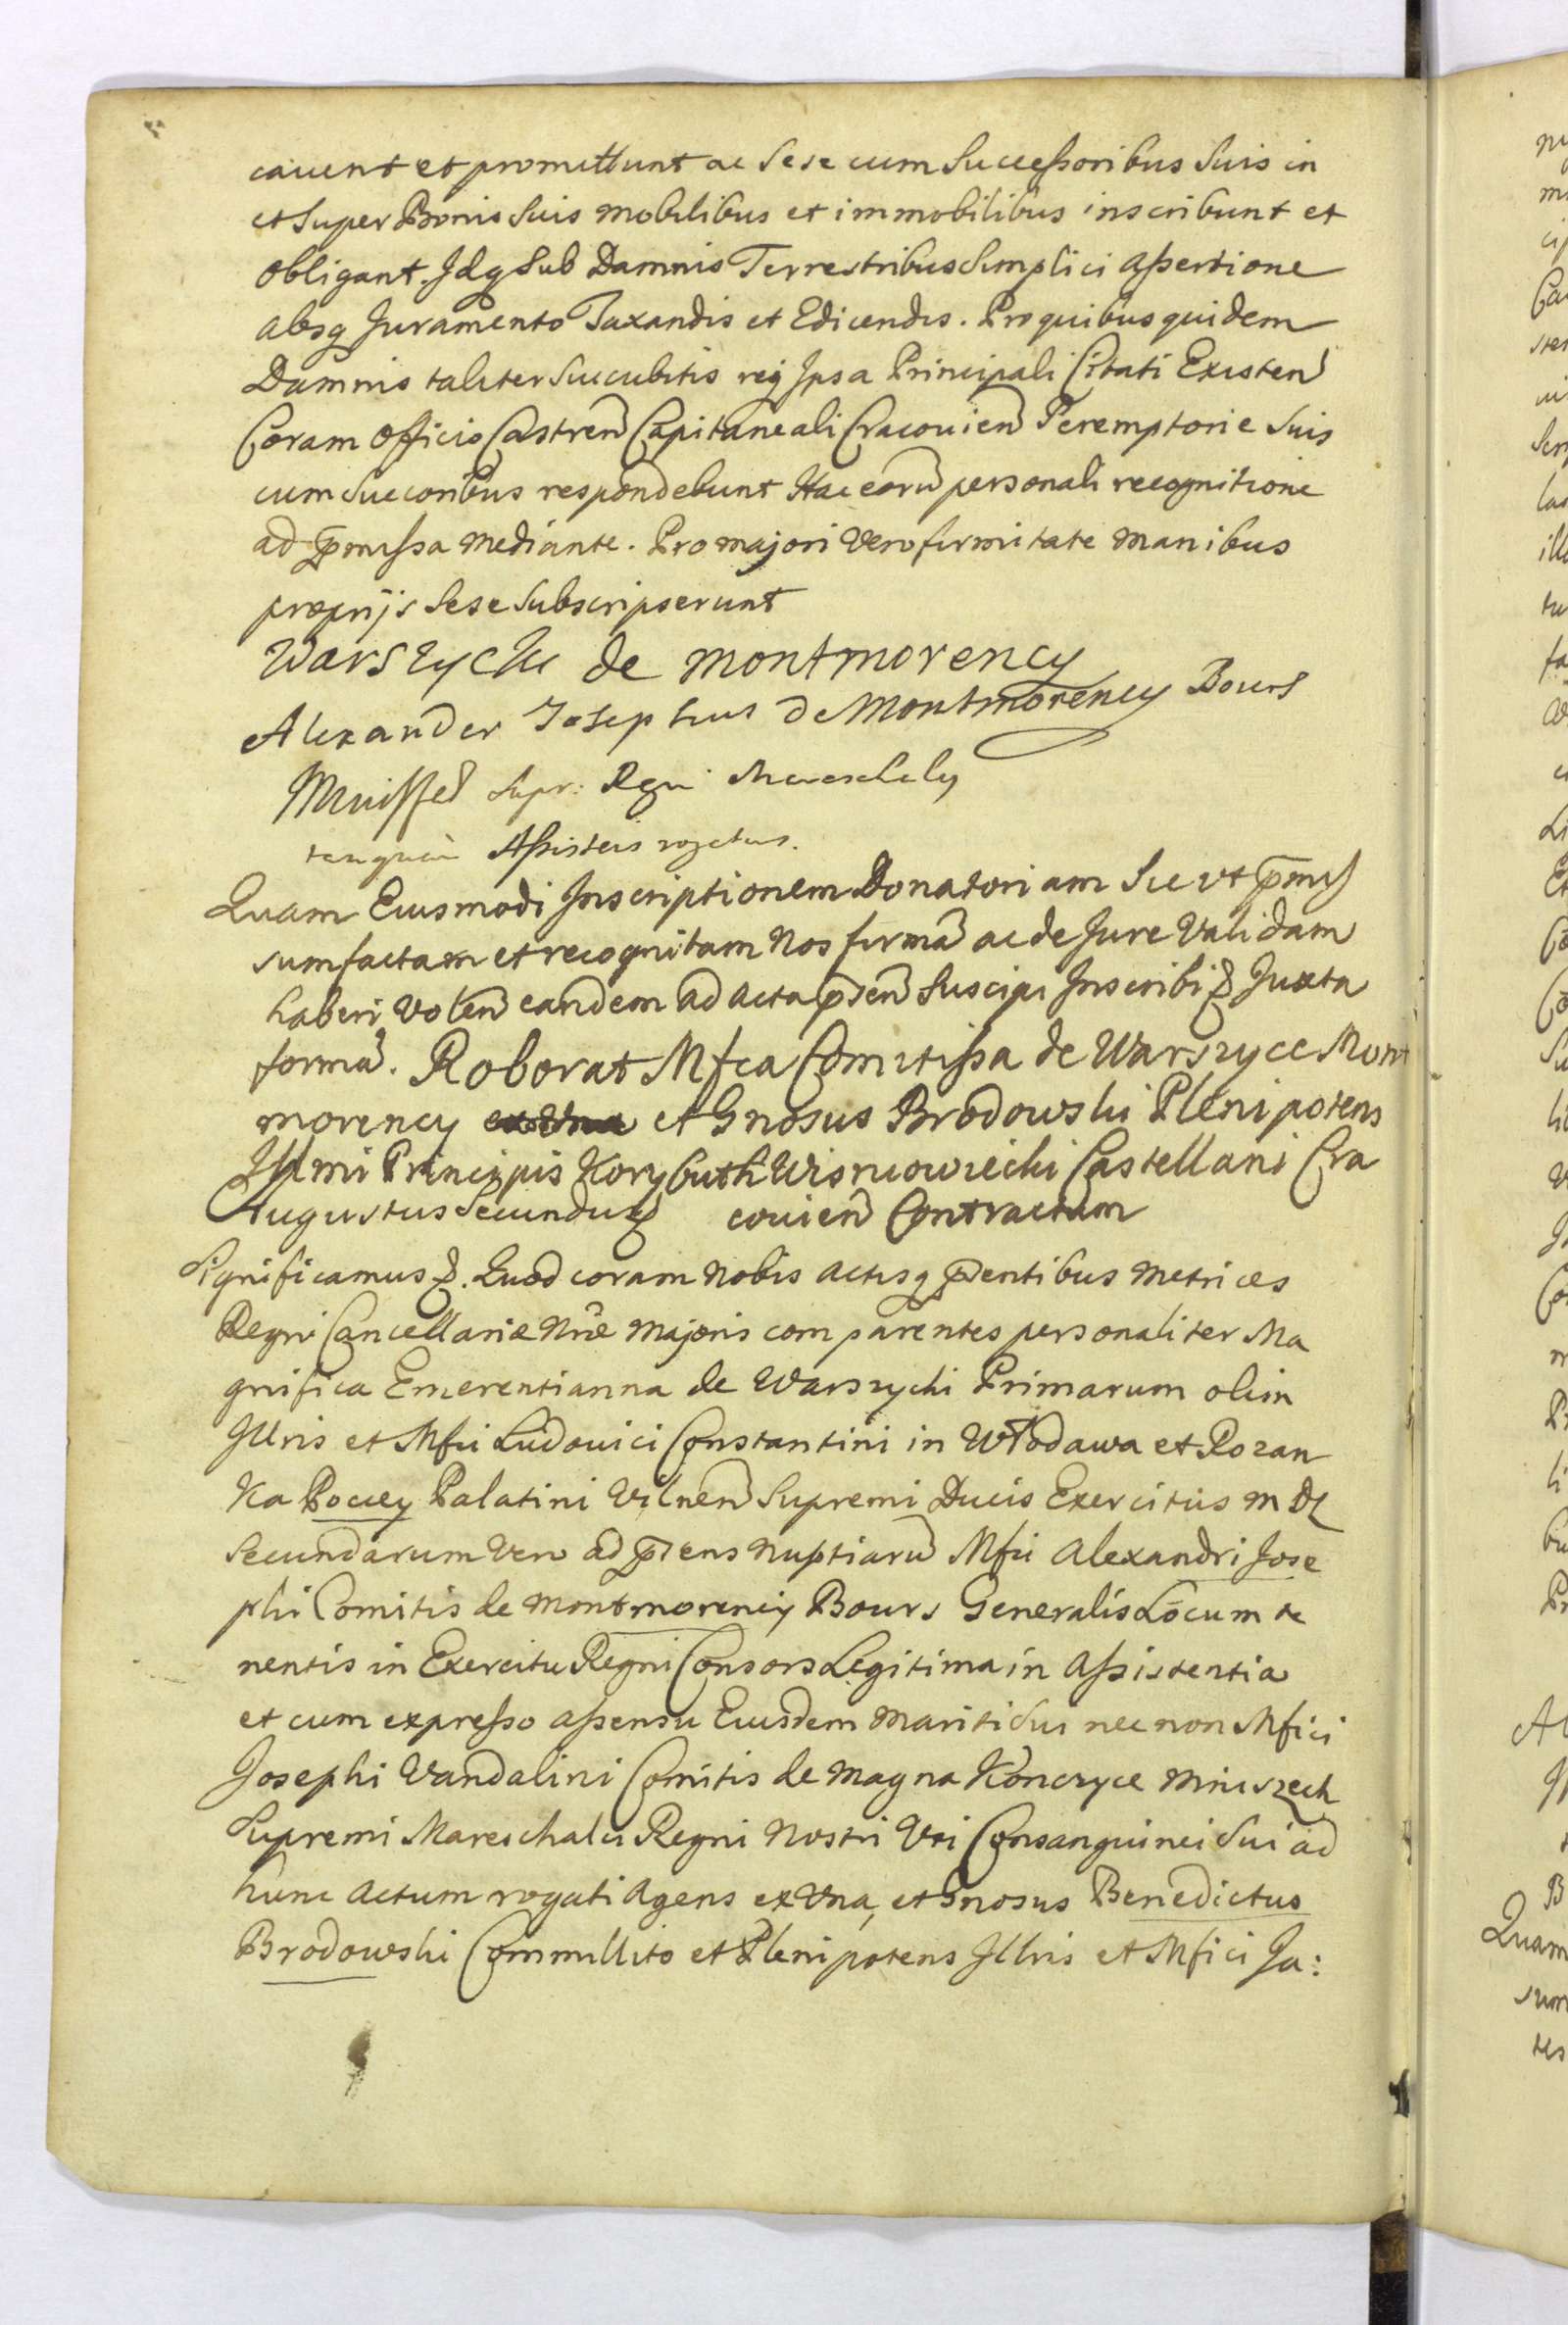 cauent et promittunt ac Sese cum Successoribus Suis in
et Super Bonis Suis mobilibus et immobilibus inscribunt et
obligant. Idq Sub Damnis Terrestribus Simplici assertione
absq Juramento Taxandis et Edicendis. Pro quibus quidem
Damnis taliter Succubitis req Ipsa Principali Citati Existen
Coram Officio Castren Capitaneali Cracouien Peremptorie Suis
cum Succoribus respondebunt Hac eorū personali recognitione
ad p̄missa mediante. Pro majori Vero firmitate manibus
proprijs Sese Subscripserunt
Warszycki de montmorency
Alexander Josephus de Montmorency Bours
Mniszech Supr: Regni Mareschalcus
tanquam Assistens rogatus.
Quam Eiusmodi Inscriptionem Donatoriam Sic vt p̄mis
sum factam et recognitam Nos firmā ac de Jure Validam
haberi Volen eandem ad acta p̄sen Suscipi Inscribi & Juxta
formā. Roborat Mfca Comitissa de Warszyce Mont
morency ex Vna et Gnosus Brodowski Plenipotens
Illmi Principis Korybuth Wisniowiecki Castellani Cra
Augustus Secundus & couien Contractum
Significamus &. Quod coram Nobis actisq p̄sentibus Metrices
Regni Cancellariæ Nræ Majoris comparentes personaliter Ma
gnifica Emerentianna de Warszycki Primarum olim
Illris et Mfci Ludouici Constantini in Włodawa et Rozan
Ka Pociey Palatini Vilnen Supremi Ducis Exercitus M D L
Secundarum Vero ad p̄sens Nuptiarū Mfci Alexandri Jose
phi Comitis de Montmorency Bours Generalis Locum te
nentis in Exercitu Regni Consors Legitima in Assistentia
et cum expresso assensu Eiusdem Mariti Sui nec non Mfici
Josephi Vandalini Comitis de Magna Konczyce Mniszech
Supremi Mareschalci Regni Nostri Vti Consanguinei Sui ad
hunc actum rogati Agens ex Vna, et Gnosus Benedictus
Brodowski Commilito et Plenipotens Illris et Mfici Ja: